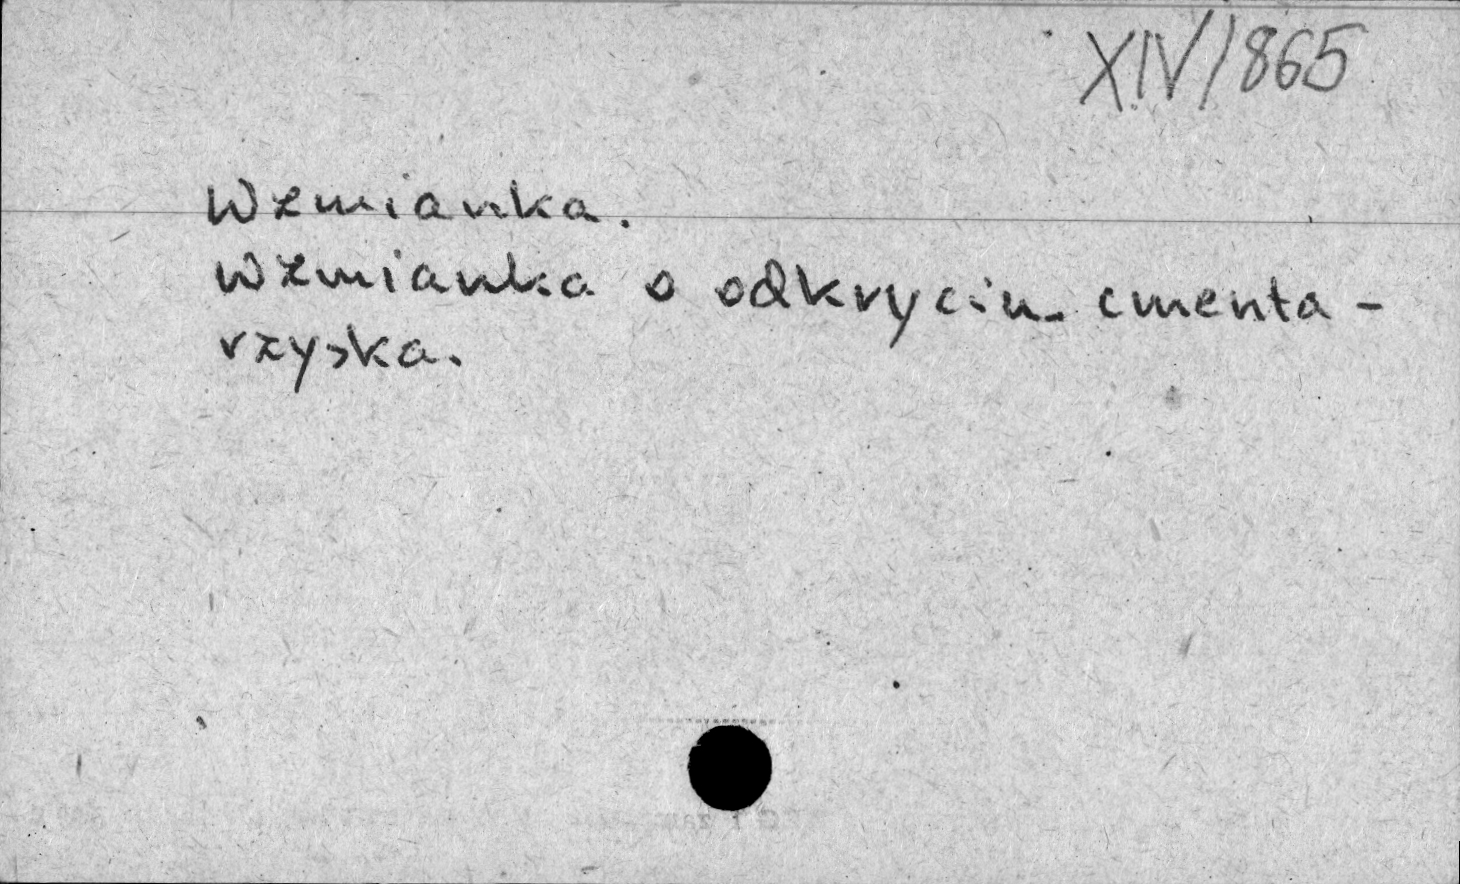 XIV/865
Wzmianka.
Wzmianka o odkryciu cmenta-
rzyska.